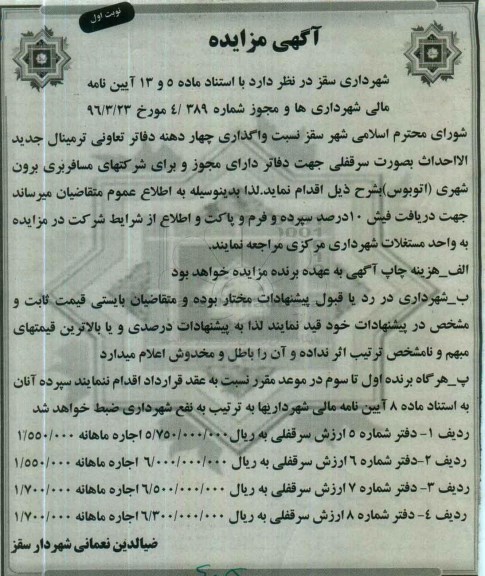 نوبت اول
آگهی مزایده
شهرداری سقز در نظر دارد با استناد ماده ۵ و ۱۳ آیین نامه
مالی شهرداری ها و مجوز شماره ۳۸۹ /٤ مورخ ۹۶/۳/۲۳
شورای محترم اسلامی شهر سقز نسبت واگذاری چهار دهنه دفاتر تعاونی ترمینال جدید
الااحداث بصورت سرقفلی جهت دفاتر دارای مجوز و برای شرکتهای مسافربری برون
شهری (اتوبوس)بشرح ذیل اقدام نماید.لذا بدینوسیله به اطلاع عموم متقاضیان میرساند
جهت دریافت فیش ۱۰درصد سپرده و فرم و پاکت و اطلاع از شرایط شرکت در مزایده
به واحد مستغلات شهرداری مرکزی مراجعه نمایند.
الف_هزینه چاپ آگهی به عهده برنده مزایده خواهد بود
ب_شهرداری در رد یا قبول پیشنهادات مختار بوده و متقاضیان بایستی قیمت ثابت و
مشخص در پیشنهادات خود قید نمایند لذا به پیشنهادات درصدی و یا بالاترین قیمتهای
مبهم و نامشخص ترتیب اثر نداده و آن را باطل و مخدوش اعلام میدارد
پ_هرگاه برنده اول تا سوم در موعد مقرر نسبت به عقد قرارداد اقدام ننمایند سپرده آنان
به استناد ماده ۸ آیین نامه مالی شهرداریها به ترتیب به نفع شهرداری ضبط خواهد شد
ردیف ۱- دفتر شماره ۵ ارزش سرقفلی به ریال ۵/۷۵۰/۰۰۰/۰۰۰ اجاره ماهانه ۱/۵۵۰/۰۰۰
ردیف ۲-دفتر شماره ۶ ارزش سرقفلی به ریال ۶/۰۰۰/۰۰۰/۰۰۰ اجاره ماهانه ۱/۵۵۰/۰۰۰
ردیف ۳- دفتر شماره ۷ ارزش سرقفلی به ریال ۶/۵۰۰/۰۰۰/۰۰۰ اجاره ماهانه ۱/۷۰۰/۰۰۰
ردیف ٤- دفتر شماره ۸ ارزش سرقفلی به ریال ۶/۳۰۰/۰۰۰/۰۰۰ اجاره ماهانه ۱/۷۰۰/۰۰۰
ضیالدین نعمانی شهردار سقز